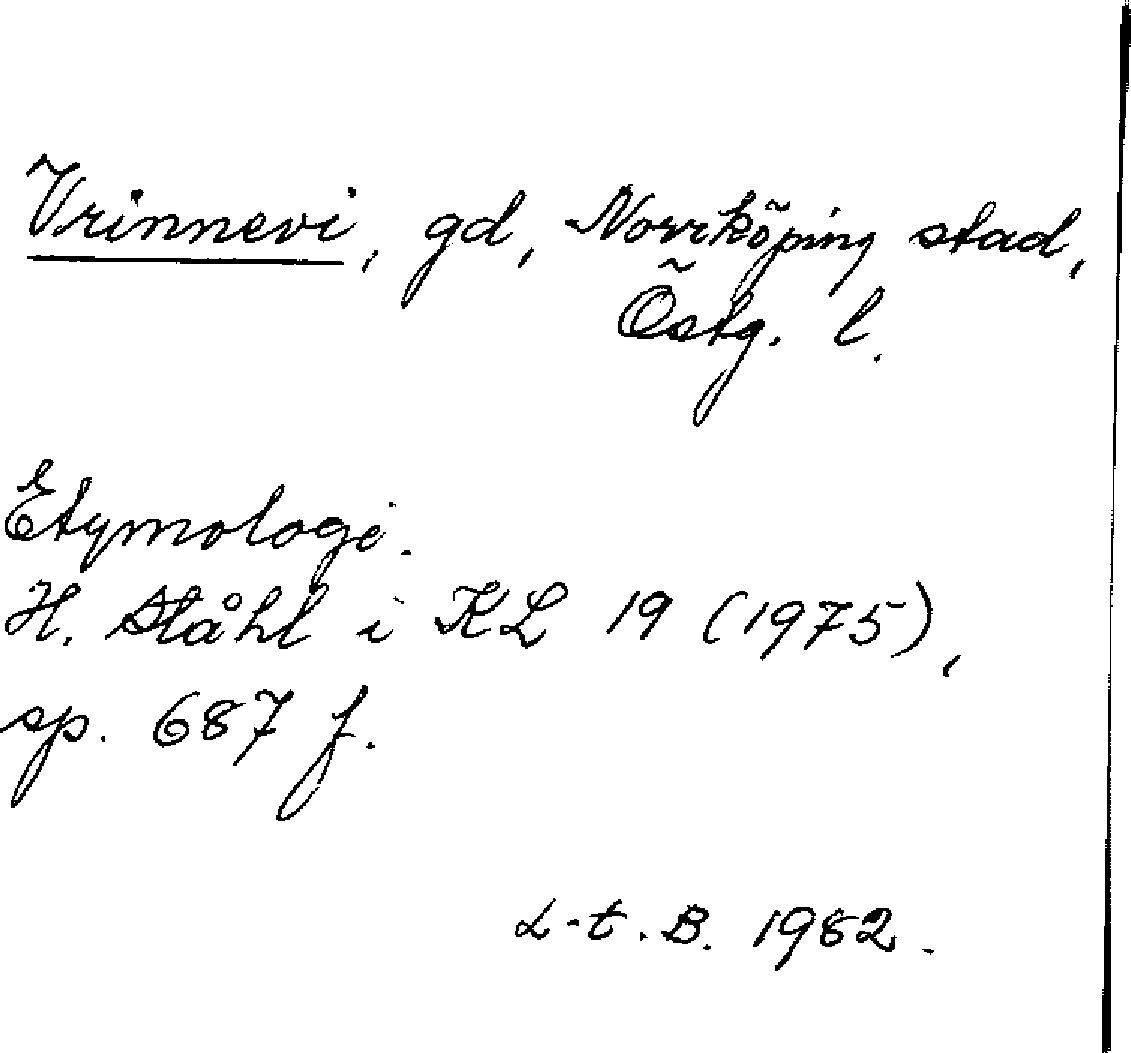 Vrinnevi, gd, Norrköping stad,
Östg. l.
Etymologi.
H. Ståhl i KL 19 (1975),
sp. 687 f.
L-t. B. 1982.